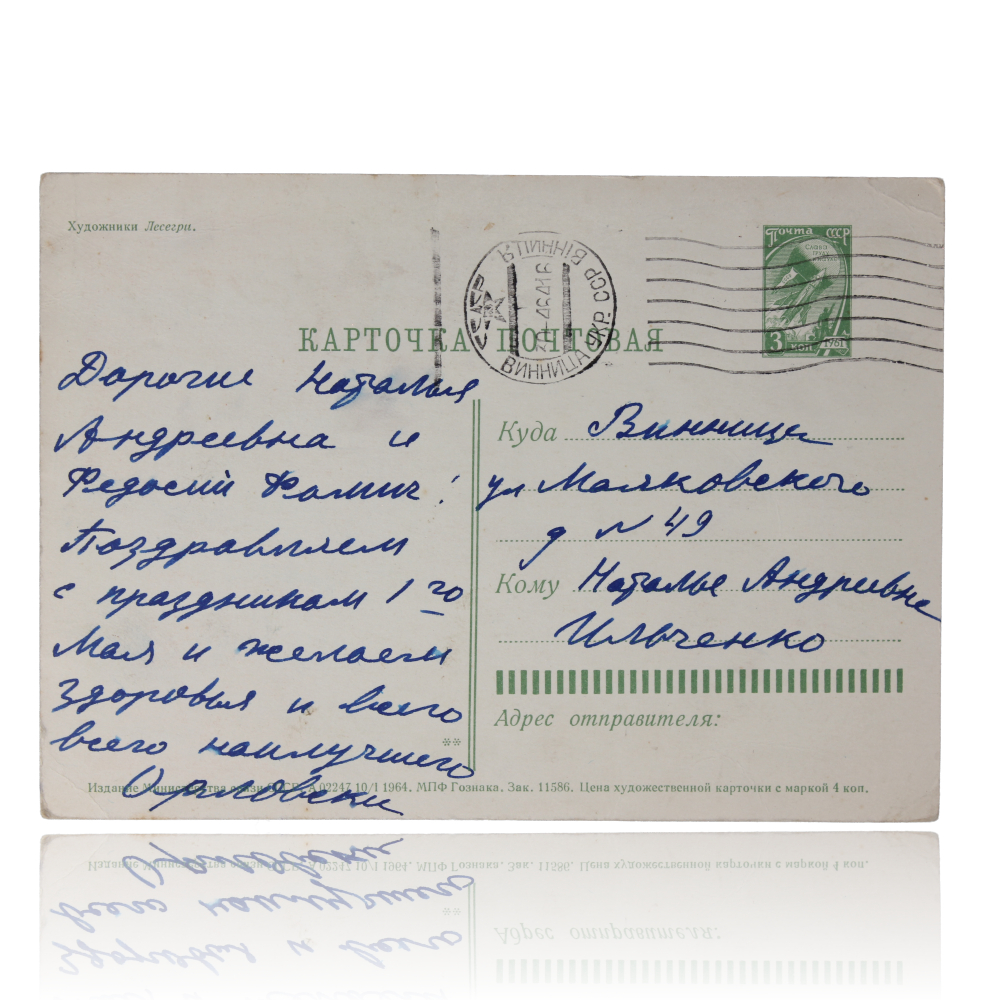 Художники Лесегри.
Почта СССР
3 коп
1961
ВІННИЦЯ
ВИННИЦА УКР. ССР
КАРТОЧКА ПОЧТОВАЯ
Дорогие Наталья
Андреевна и
Федосий Фомич!
Поздравляем
с праздником 1го
Мая и желаем
здоровья и всего
всего наилучшего
Орловски
Куда Винница
ул Маяковского
д N 49
Кому Наталье Андреевне
Ильченко
Адрес отправителя:
**
Издание Министерства связи СССР. А 02247 10/I 1964. МПФ Гознака. Зак. 11586. Цена художественной карточки с маркой 4 коп.